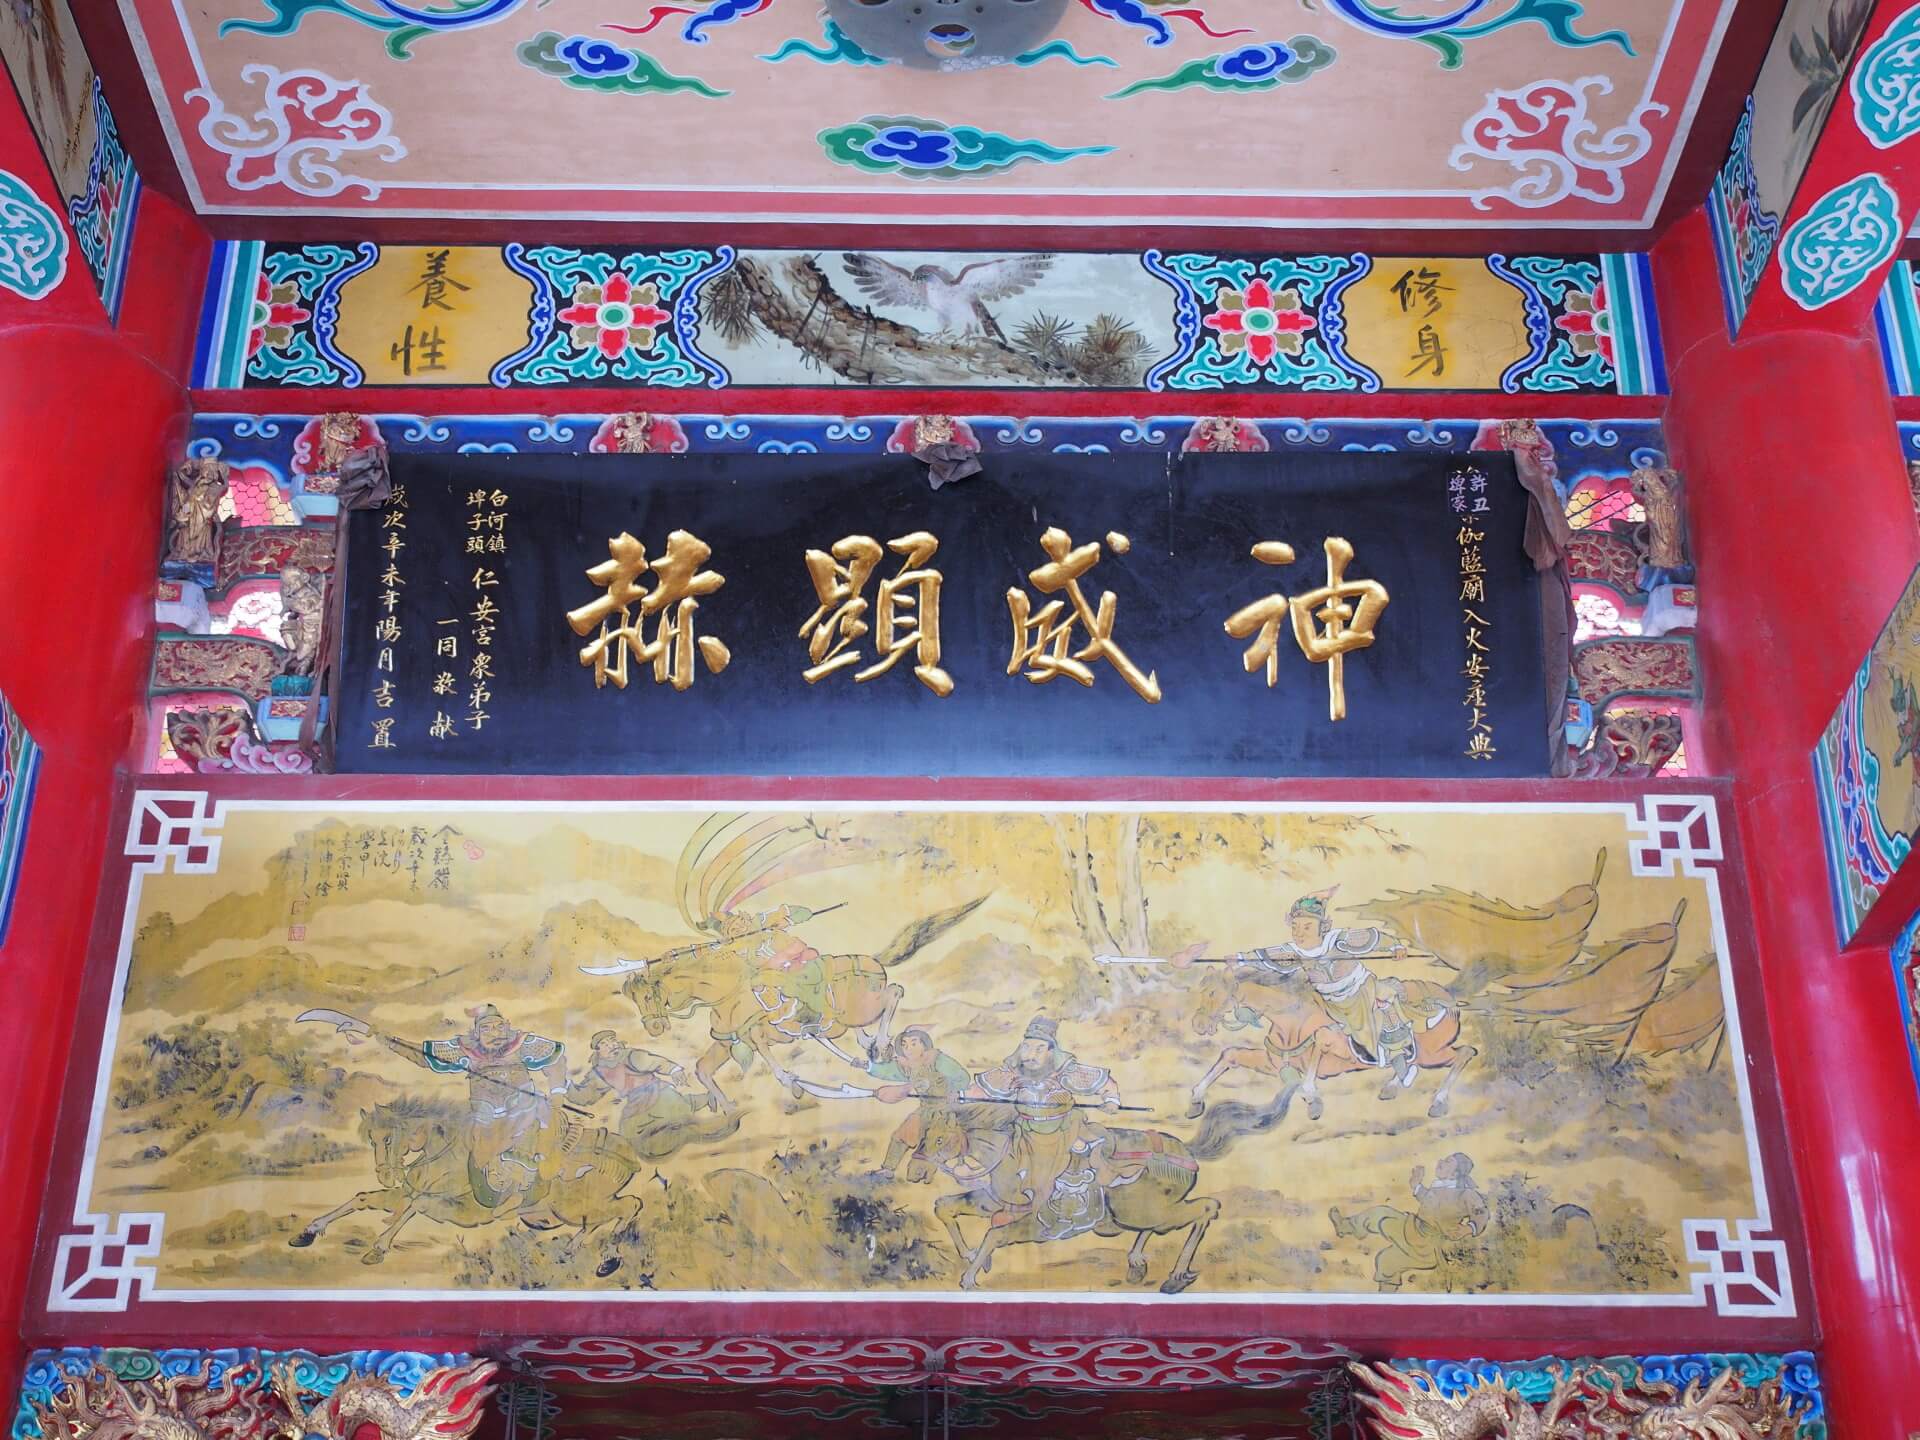 修身
養性
神威顯赫
許丑
埤寮
伽藍廟入火安座大典
白河鎮
埤子頭
仁安宮眾弟子
一同敬献
歲次辛未年陽月吉置
歲次辛未
學甲